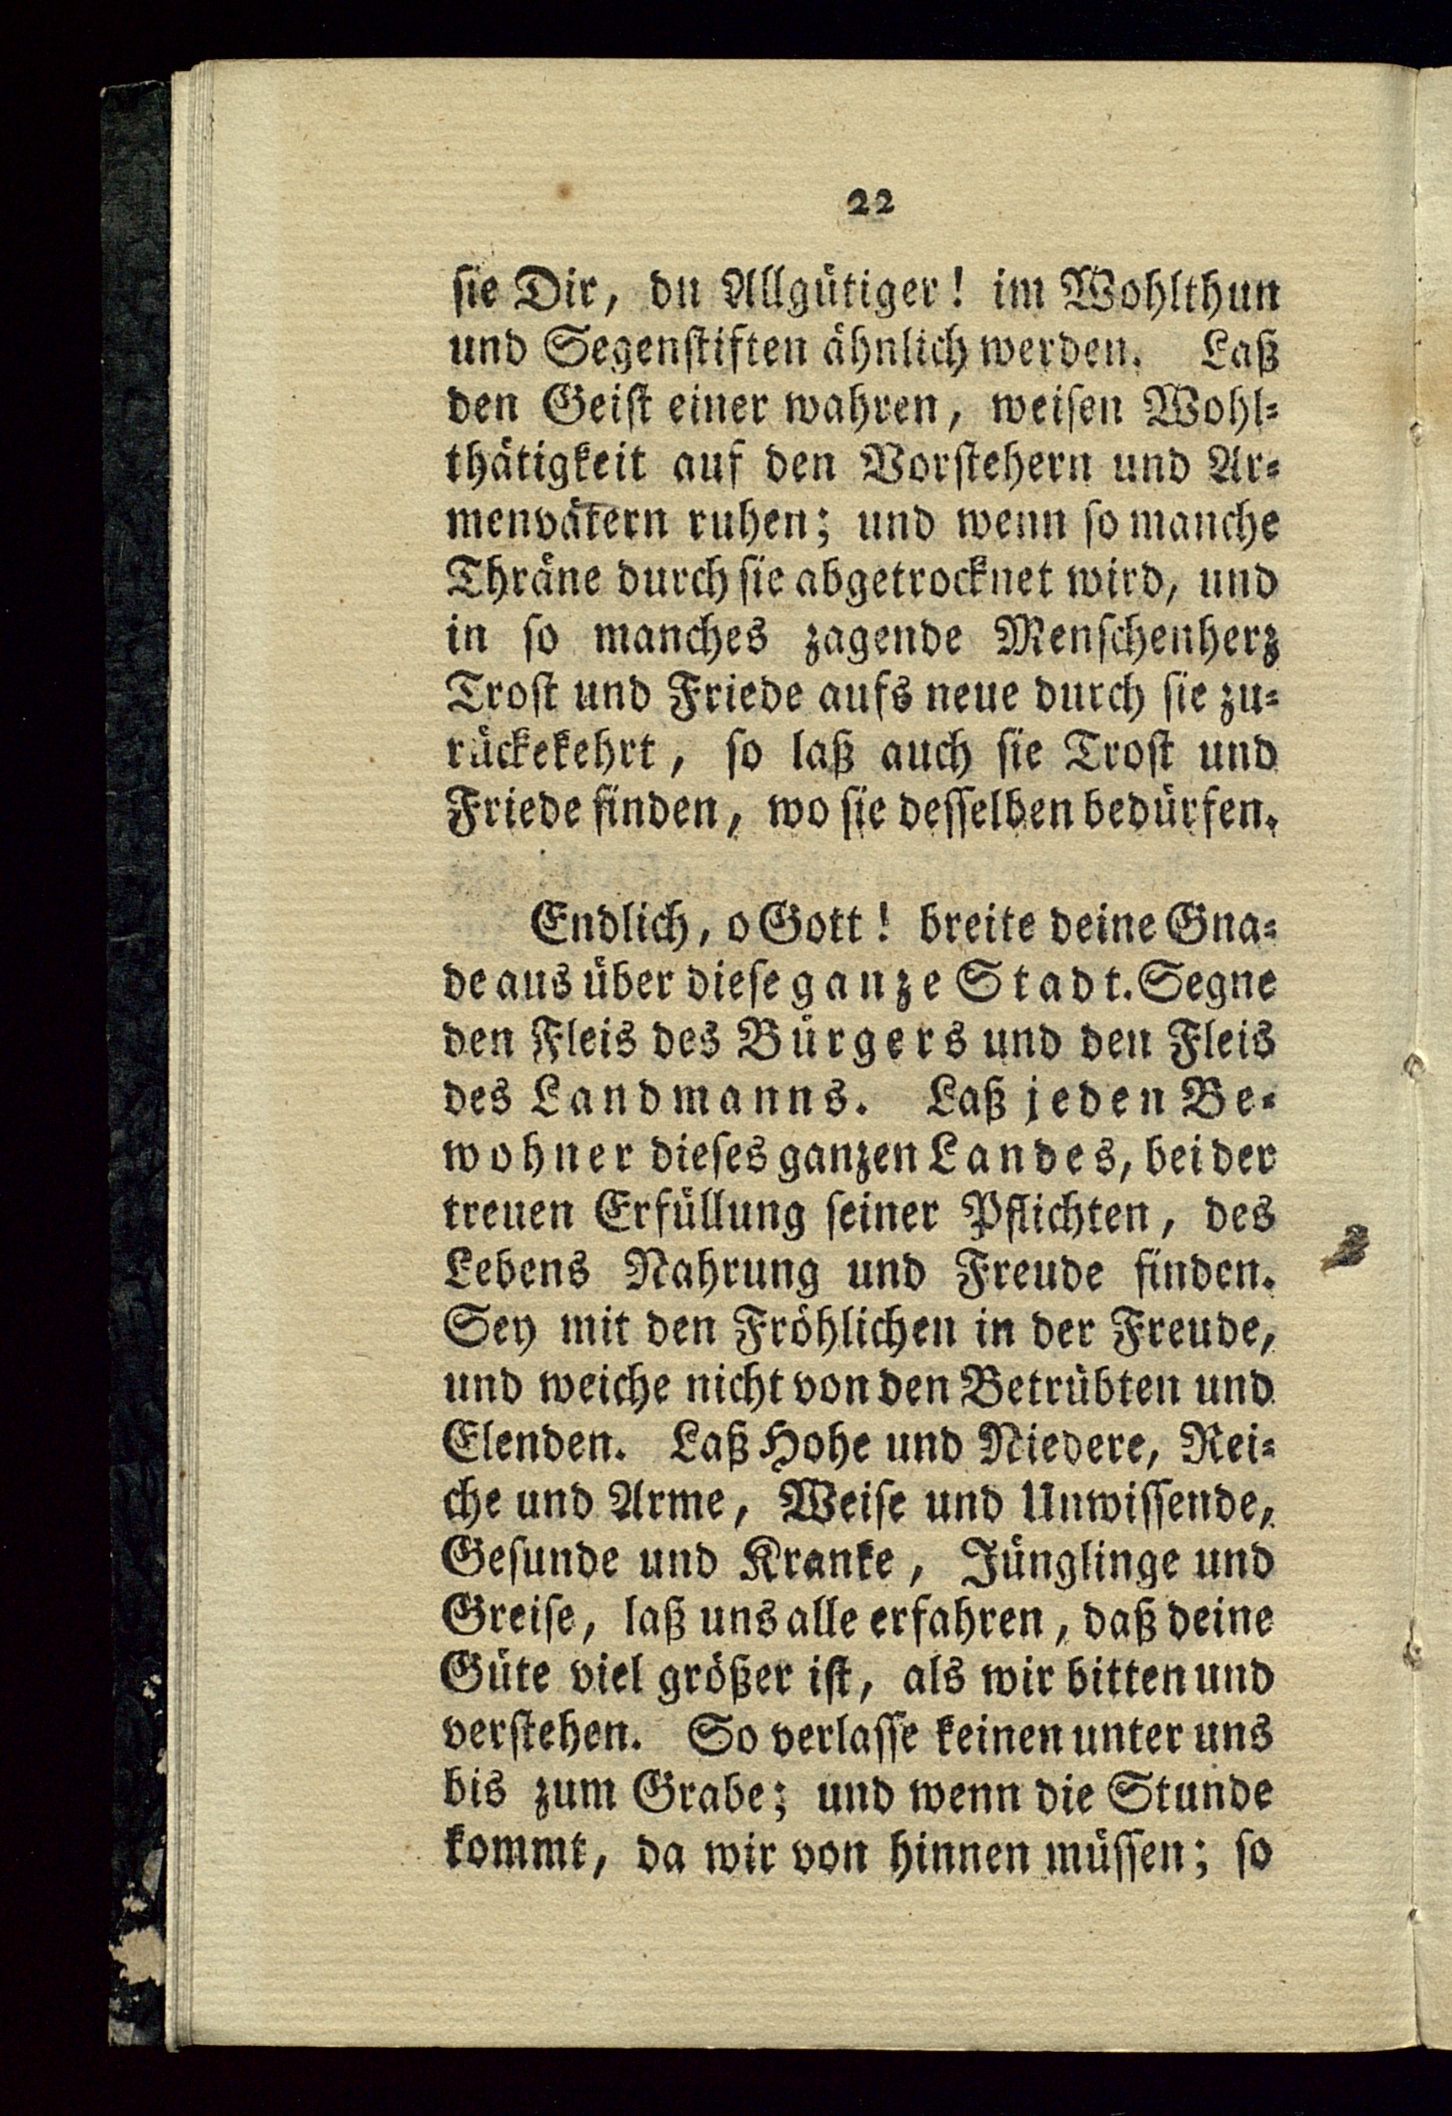 22
sie Dir, du Allgütiger! im Wohlthun
und Segenstiften ähnlich werden. Laß
den Geist einer wahren, weisen Wohl=
thätigkeit auf den Vorstehern und Ar=
menvätern ruhen; und wenn so manche
Thräne durch sie abgetrocknet wird, und
in so manches zagende Menschenherz
Trost und Friede aufs neue durch sie zu=
rückekehrt, so laß auch sie Trost und
Friede finden, wo sie desselben bedürfen.
Endlich, o Gott! breite deine Gna=
de aus über diese ganze Stadt. Segne
den Fleis des Bürgers und den Fleis
des Landmanns. Laß jeden Be=
wohner dieses ganzen Landes, bei der
treuen Erfüllung seiner Pflichten, des
Lebens Nahrung und Freude finden.
Sey mit den Fröhlichen in der Freude,
und weiche nicht von den Betrübten und
Elenden. Laß Hohe und Niedere, Rei=
che und Arme, Weise und Unwissende,
Gesunde und Kranke, Jünglinge und
Greise, laß uns alle erfahren, daß deine
Güte viel größer ist, als wir bitten und
verstehen. So verlasse keinen unter uns
bis zum Grabe; und wenn die Stunde
kommt, da wir von hinnen müssen; so